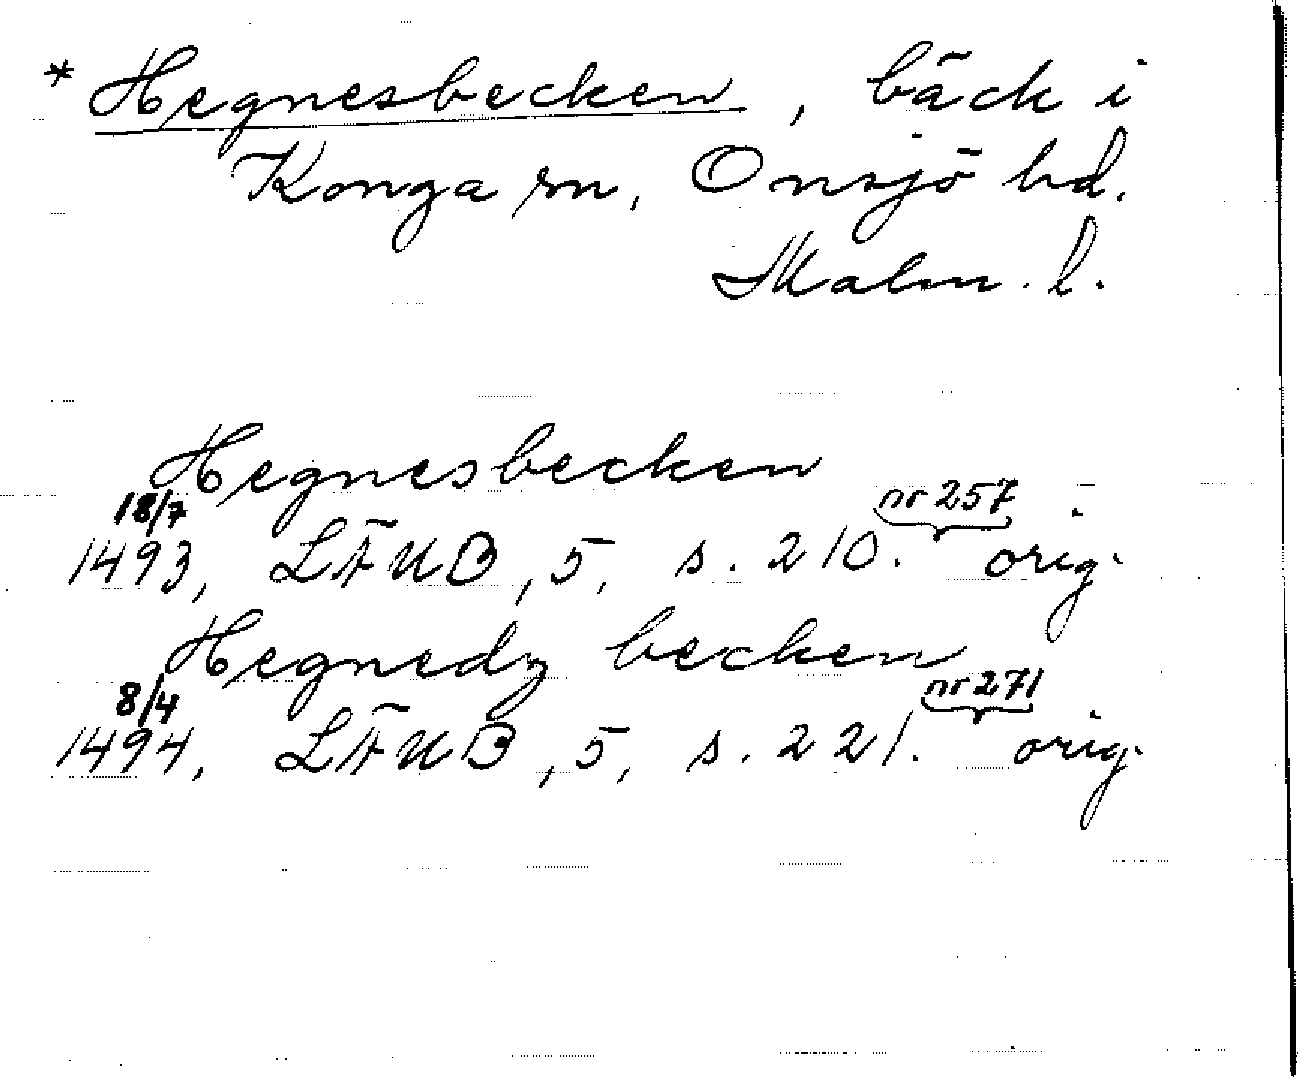 * Hegnesbecken, bäck i
Konga sn, Onsjö hd.
Malm. l.
Hegnesbecken
18/7 nr 257
1493, LÄUB, 5, s. 210. orig.
Hegnedz becken
8/4 nr 271
1494, LÄUB, 5, s. 221. orig.